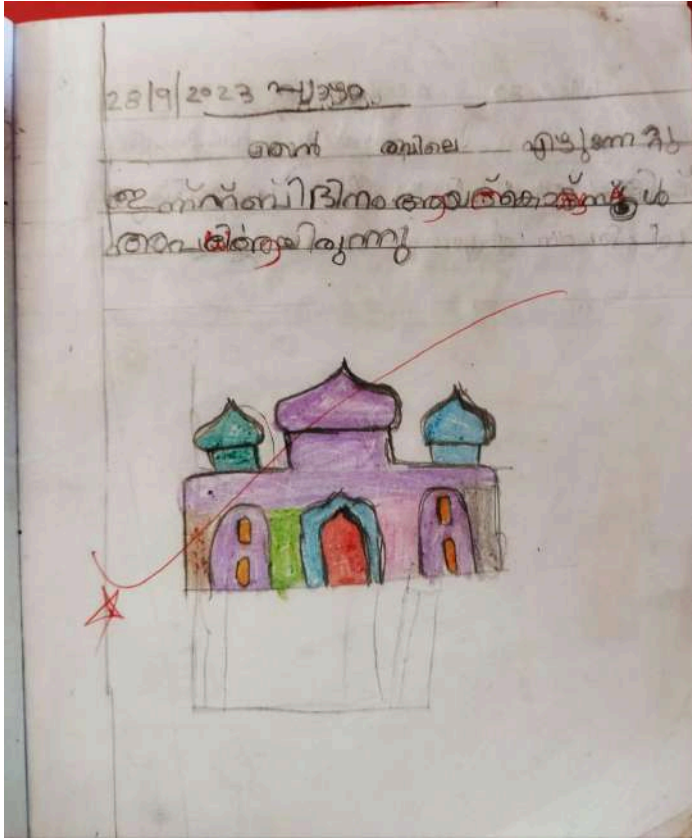 28/9/2023 വ്യാഴം
ഞെൻ രവിലെ എഴുന്നേറ്റു
ഇന്ന് നബി ദിനം ആയത് കൊണ്ട് സ്കൂൾ
അവധിആയിരുന്നു